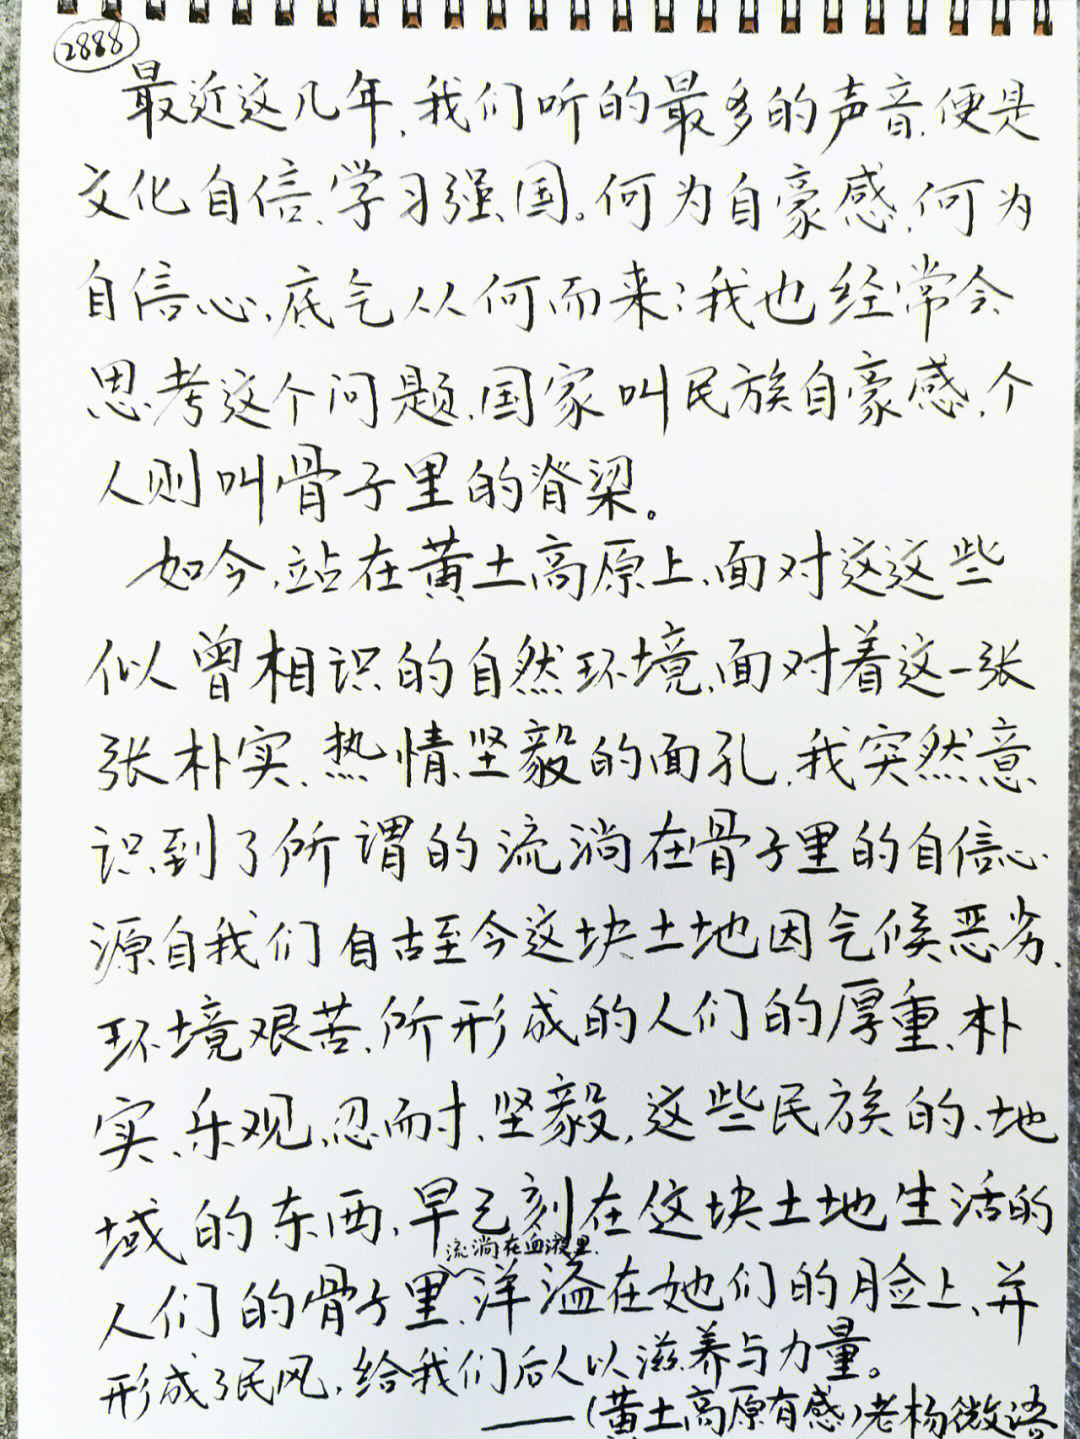 2888
最近这几年,我们听的最多的声音,便是
文化自信、学习强国。何为自豪感,何为
自信心,底气从何而来;我也经常会
思考这个问题,国家叫民族自豪感,个
人则叫骨子里的脊梁。
如今,站在黄土高原上,面对这这些
似曾相识的自然环境,面对着这一张
张朴实、热情、坚毅的面孔,我突然意
识到了所谓的流淌在骨子里的自信心
源自我们自古至今这块土地因气候恶劣、
环境艰苦,所形成的人们的厚重、朴
实、乐观、忍耐、坚毅,这些民族的、地
域的东西,早已刻在这块土地生活的
流淌在血液里、
人们的骨子里、洋溢在她们的脸上、并
形成了民风,给我们后人以滋养与力量。
——(黄土高原有感)老杨微语